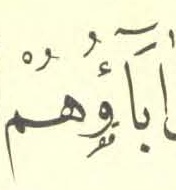 ابَآؤُهُمْ